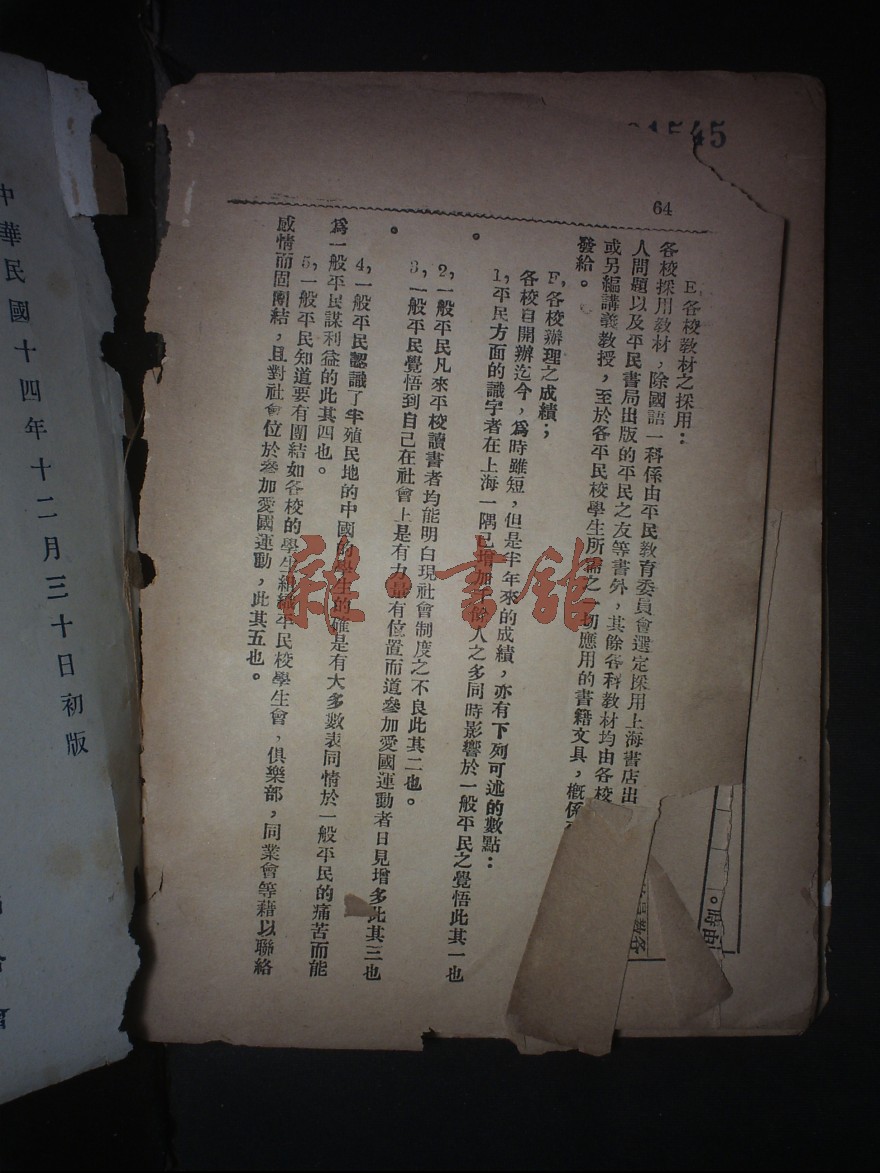 1545
64
E,各校敎材之採用：
各校採用敎材，除國語一科係由平民敎育委員會選定採用上海書店出
人問題以及平民書局出版的平民之友等書外，其餘各科敎材均由各校
或另編講義敎授，至於各平民校學生所需之一切應用的書籍文具，槪係
發給。
F,各校辦理之成績；
各校自開辦迄今，爲時雖短，但是半年來的成績，亦有下列可述的數點：
1,平民方面的識字者在上海一隅已增加千餘人之多同時影響於一般平民之覺悟此其一也
。
2,一般平民凡來平校讀書者均能明白現社會制度之不良此其二也。
3,一般平民覺悟到自己在社會上是有力量有位置而道參加愛國運動者日見增多此其三也
。
4,一般平民認識了半殖民地的中國的學生的確是有大多數表同情於一般平民的痛苦而能
爲一般平民謀利益的此其四也。
5,一般平民知道要有團結如各校的學生組織平民校學生會，俱樂部，同業會等藉以聯絡
感情而固團結，且對社會位於參加愛國運動，此其五也。
中華民國十四年十二月三十日初版
雜·書館